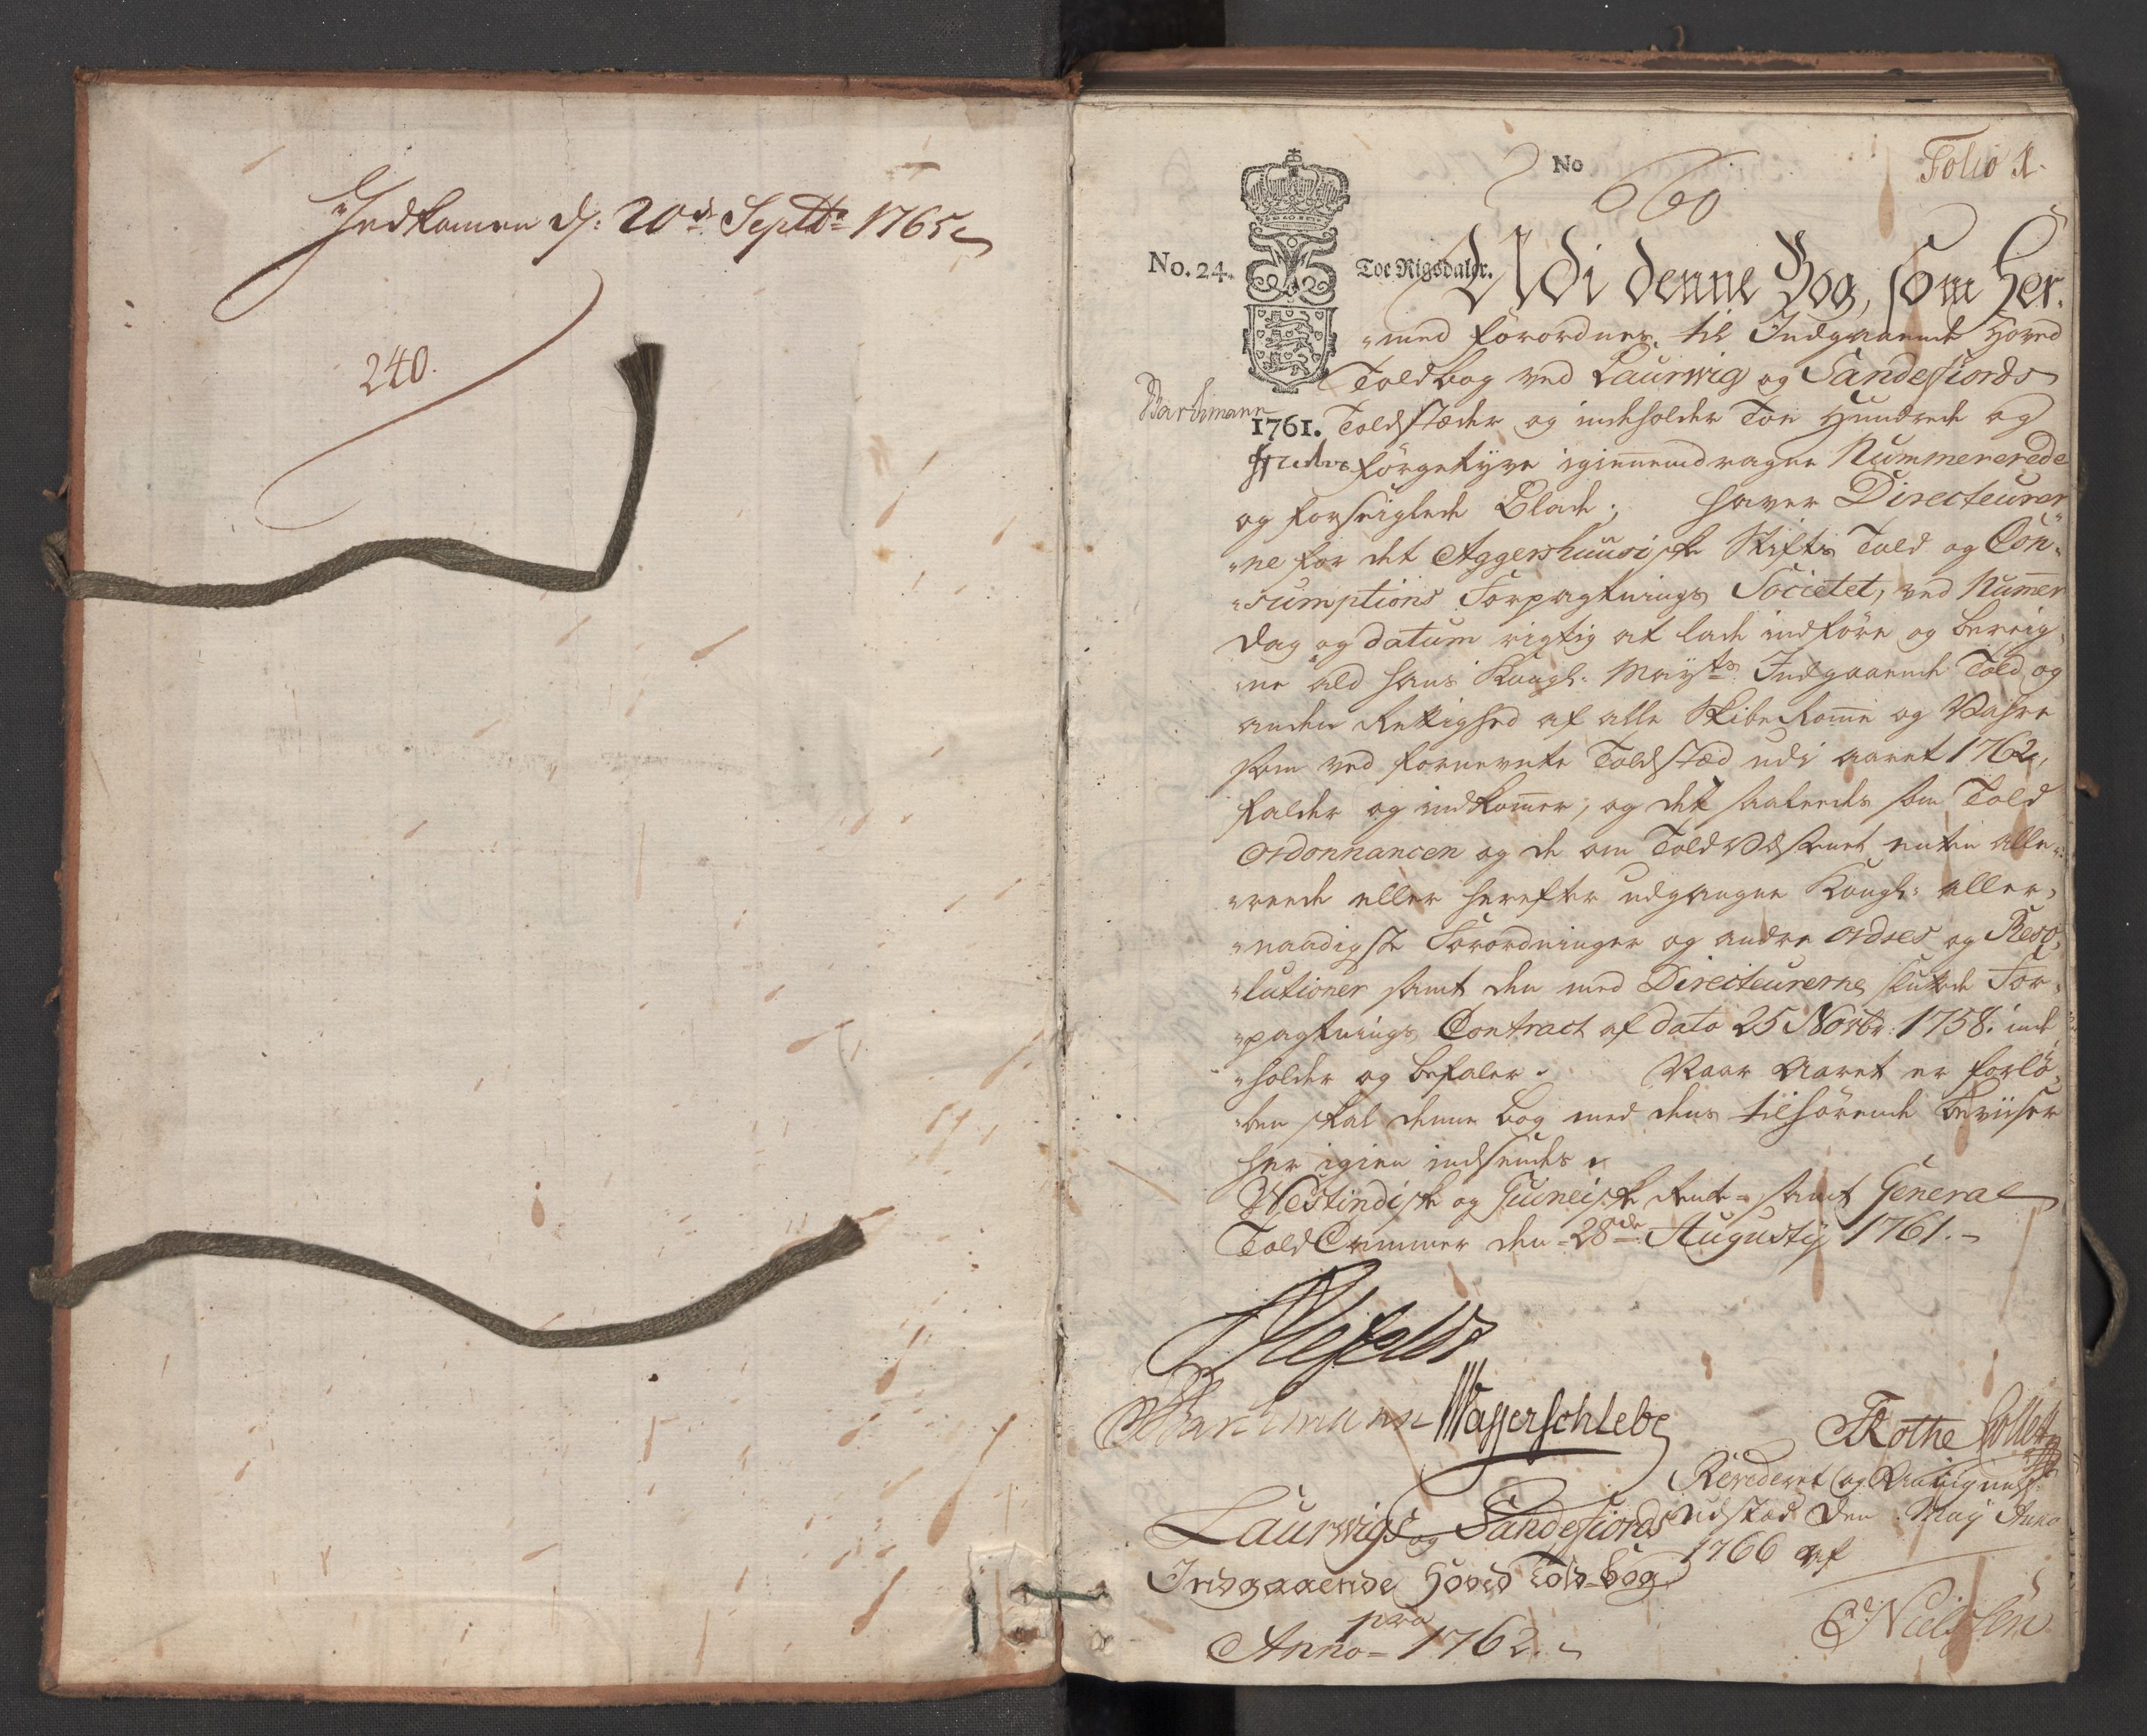 Indkomen d: 20de Septbr 1765
240.
No
660
Folio 1.
No. 24.
Toe Rigsdaler.
Udi denne Bog, som Her-
med forordnes til Indgaaende Hoved
Toldbog ved Laurwig og Sandefiords
Barchmann
1761. Toldstæder og indeholder Toe Hundrede og
førgetyve igiennemdragne Nummererede
og forseiglede Blade; haver Directeurer-
ne for det Aggershuusiske Stifts Told og Con-
sumptions Forpagtnings Societet, ved Numer
Dag og Datum rigtig at lade indføre og bereig-
ne ald Hans Kongl: Mayts Indgaaende Told og
anden Rettighed af alle Skiberome og Wahre
som ved fornevnte Toldstæd udi aaret 1762,
falder og indkomer, og det saaleedes som Told
Ordonnancen og de om Toldvæsenet enten alle-
reede eller herefter udgangne Kongl: aller-
naadigste Forordninger og andre Ordres og Reso-
lutioner samt den med Directeurerne sluttede For-
pagtnings Contract af dato 25 Novbr: 1758. inde
holder og befaler. Naar Aaret er forlø-
ben skal denne bog med dens tilhørende Beviiser
her igien indsendes.
Westindiske og Guineiske Rente- samt General
ToldCammer den 28de Augustij 1761.
Barchmann Wasserschlebe
Rothe Collett
Revideret og Antegnelse
udsted den May Anno
1766 af
Nielsen
Laurwigs og Sandefiords
Indgaaende Hoved Told-bog
pro
Anno 1762.